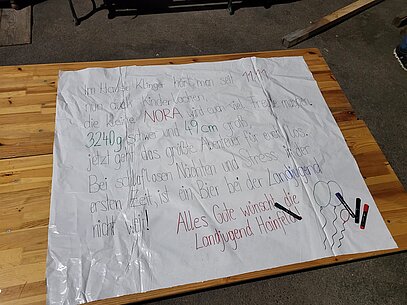 Im Hause Klinger hört man seit 11.11
nun auch Kinderlachen.
die kleine NORA wird euch viel Freude machen.
3240g schwer und 49cm groß,
jetzt geht das größte Abenteuer für euch los.
Bei schlaflosen Nächten und Stress in der
ersten Zeit, ist ein Bier bei der Landjugend
nicht weit!
Alles Gute wünscht die
Landjugend Hainfeld!